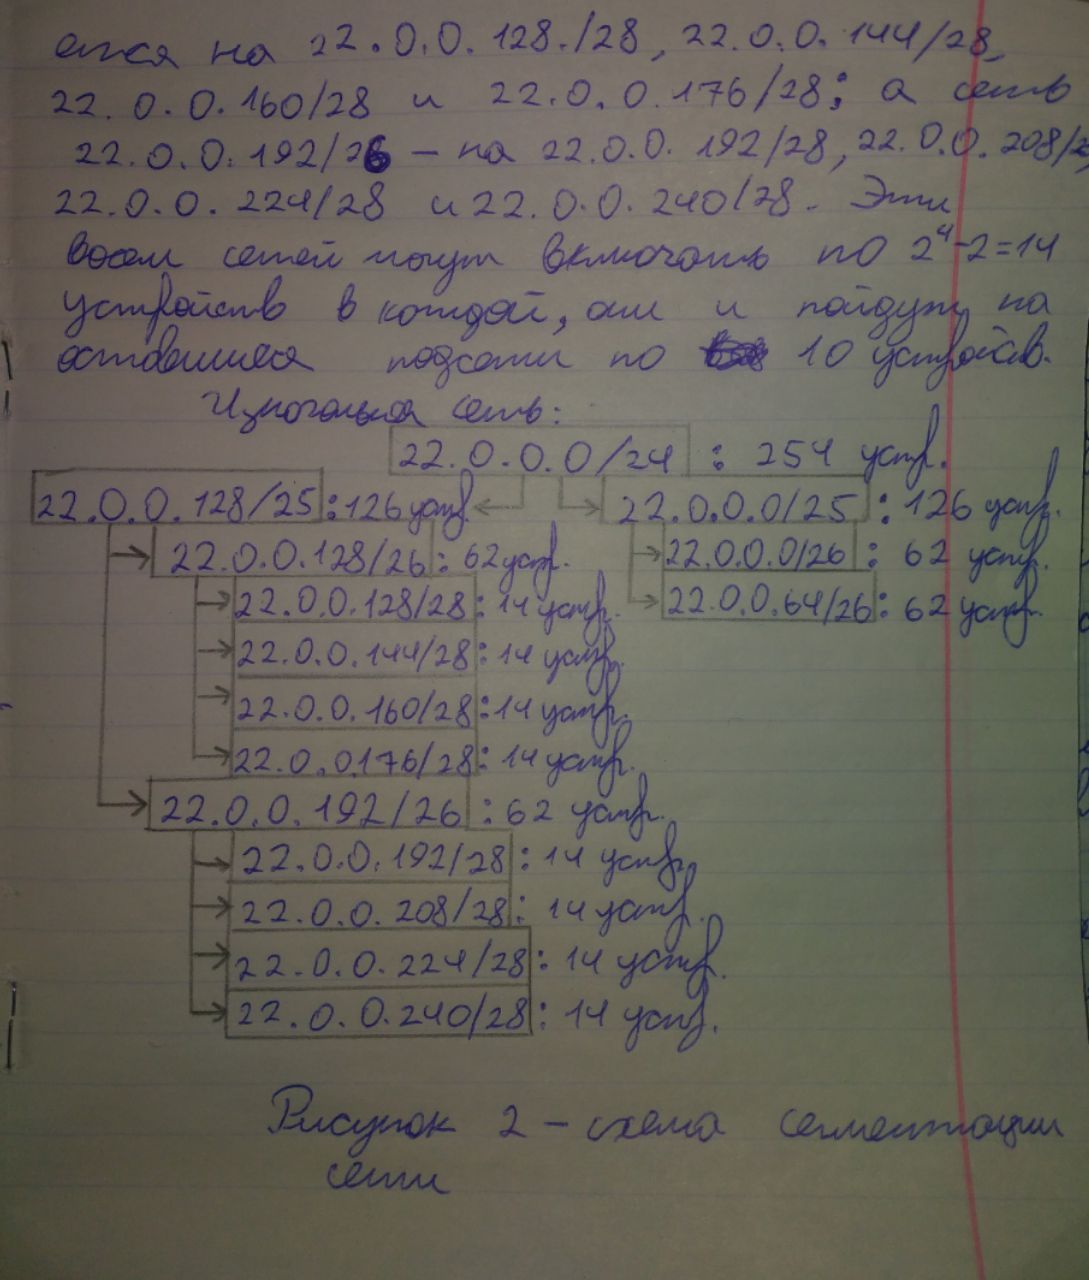 ется на 22.0.0.128./28, 22.0.0.144/28,
22.0.0.160/28 и 22.0.0.176/28; а сеть
22.0.0.192/26 – на 22.0.0.192/28, 22.0.0.208/2
22.0.0.224/28 и 22.0.0.240/28. Эти
восем сетей могут включать по 2⁴-2=14
устройств в каждой, они и пойдут на
оставшиеся подсети по 10 устройств.
Изначальная сеть:
22.0.0.0/24 : 254 устр.
22.0.0.128/25 : 126 устр. 22.0.0.0/25 : 126 устр.
22.0.0.128/26 : 62 устр. 22.0.0.0/26 : 62 устр.
22.0.0.128/28 : 14 устр. 22.0.0.64/26 : 62 устр.
22.0.0.144/28 : 14 устр.
22.0.0.160/28 : 14 устр.
22.0.0.176/28 : 14 устр.
22.0.0.192/26 : 62 устр.
22.0.0.192/28 : 14 устр.
22.0.0.208/28 : 14 устр.
22.0.0.224/28 : 14 устр.
22.0.0.240/28 : 14 устр.
Рисунок 2 – схема сегментации
сети